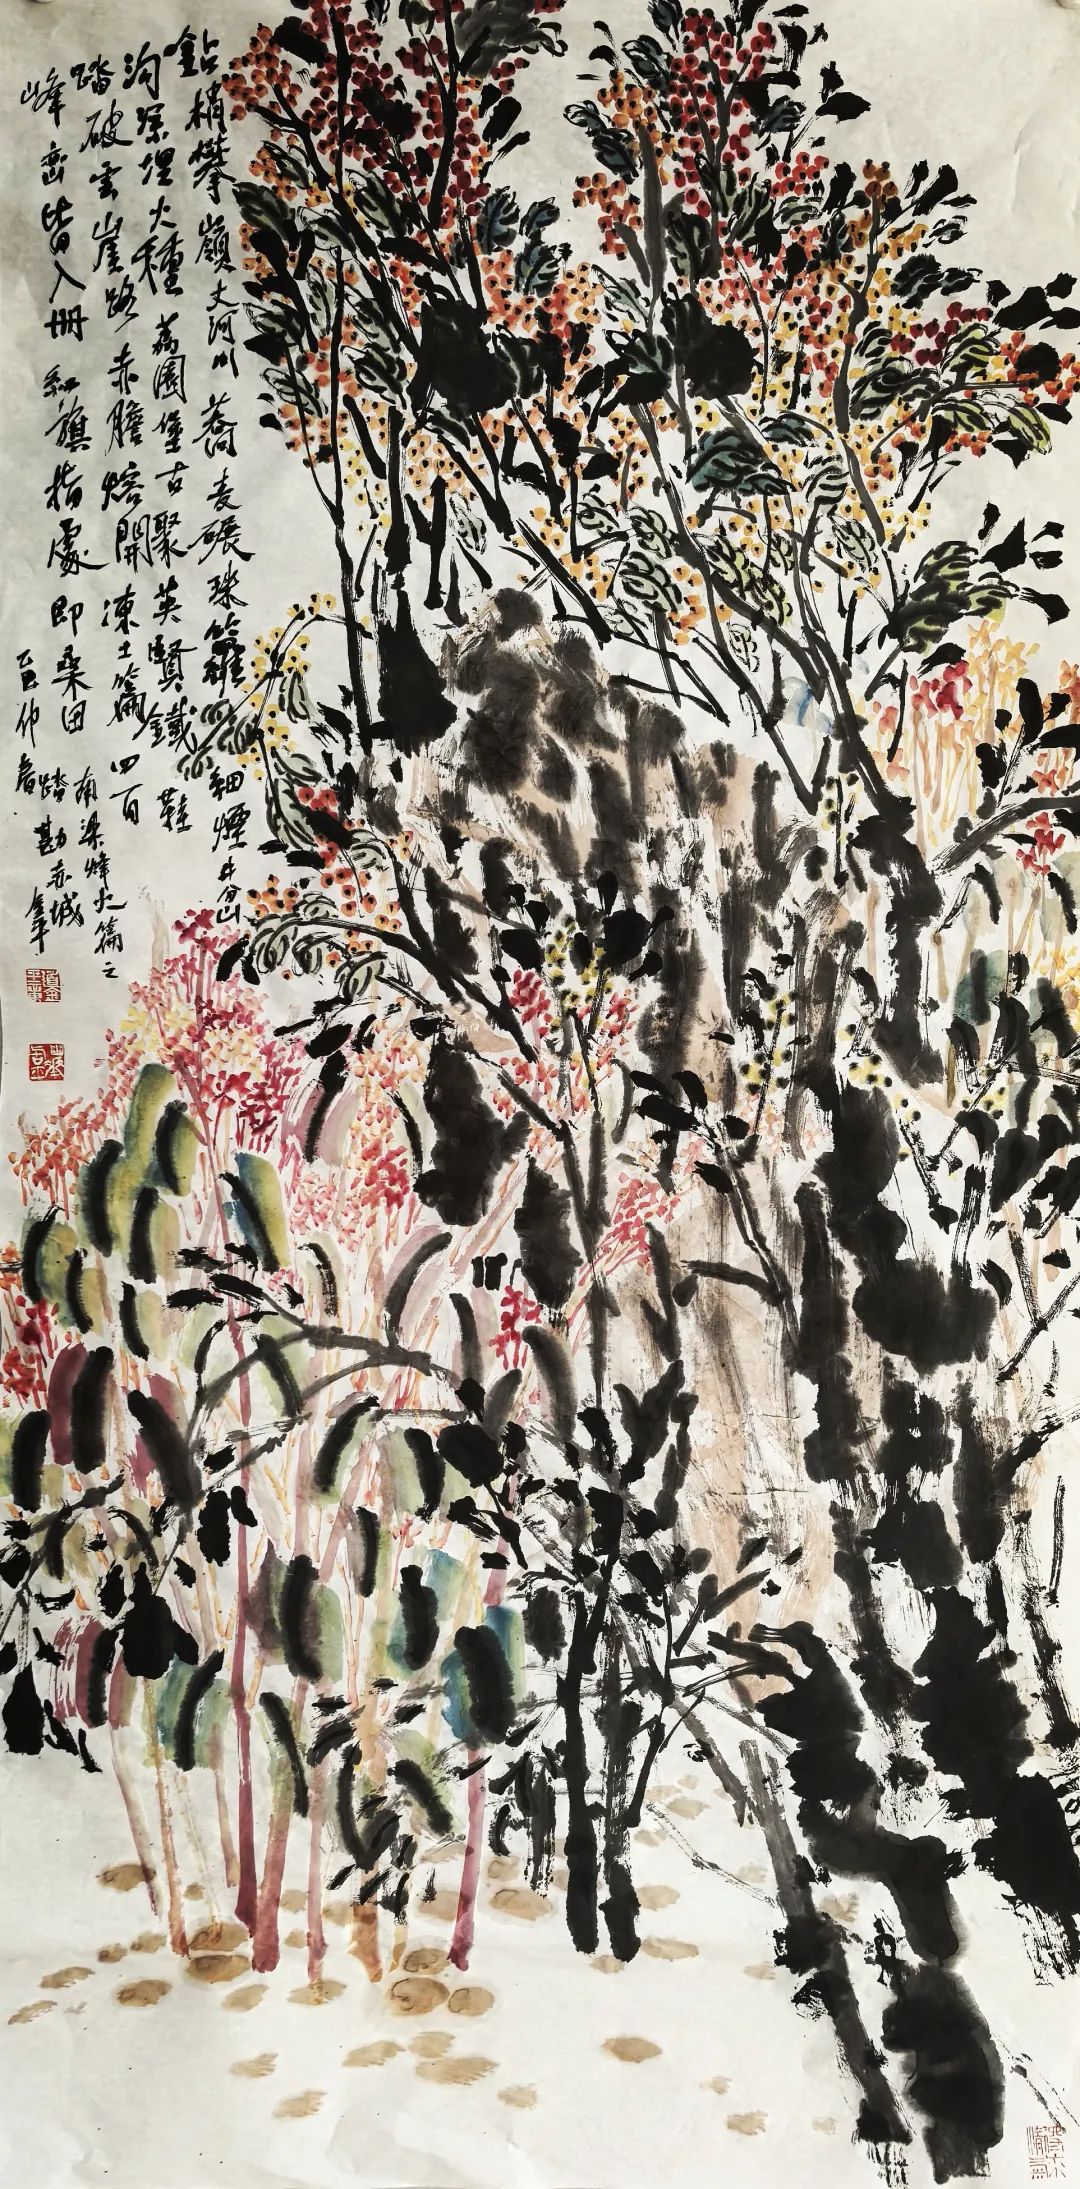 鉆梢攀嶺丈河川 蕎麦碾珠籮細煙 井岔
沟深埋火種 荔園堡古聚英賢 鐵鞋
踏破雲崖路 赤膽熔開凍土篇 四百
峰巒皆入冊 紅旗指處即桑田
南梁烽火篇之
踏勘赤城
乙巳仲春